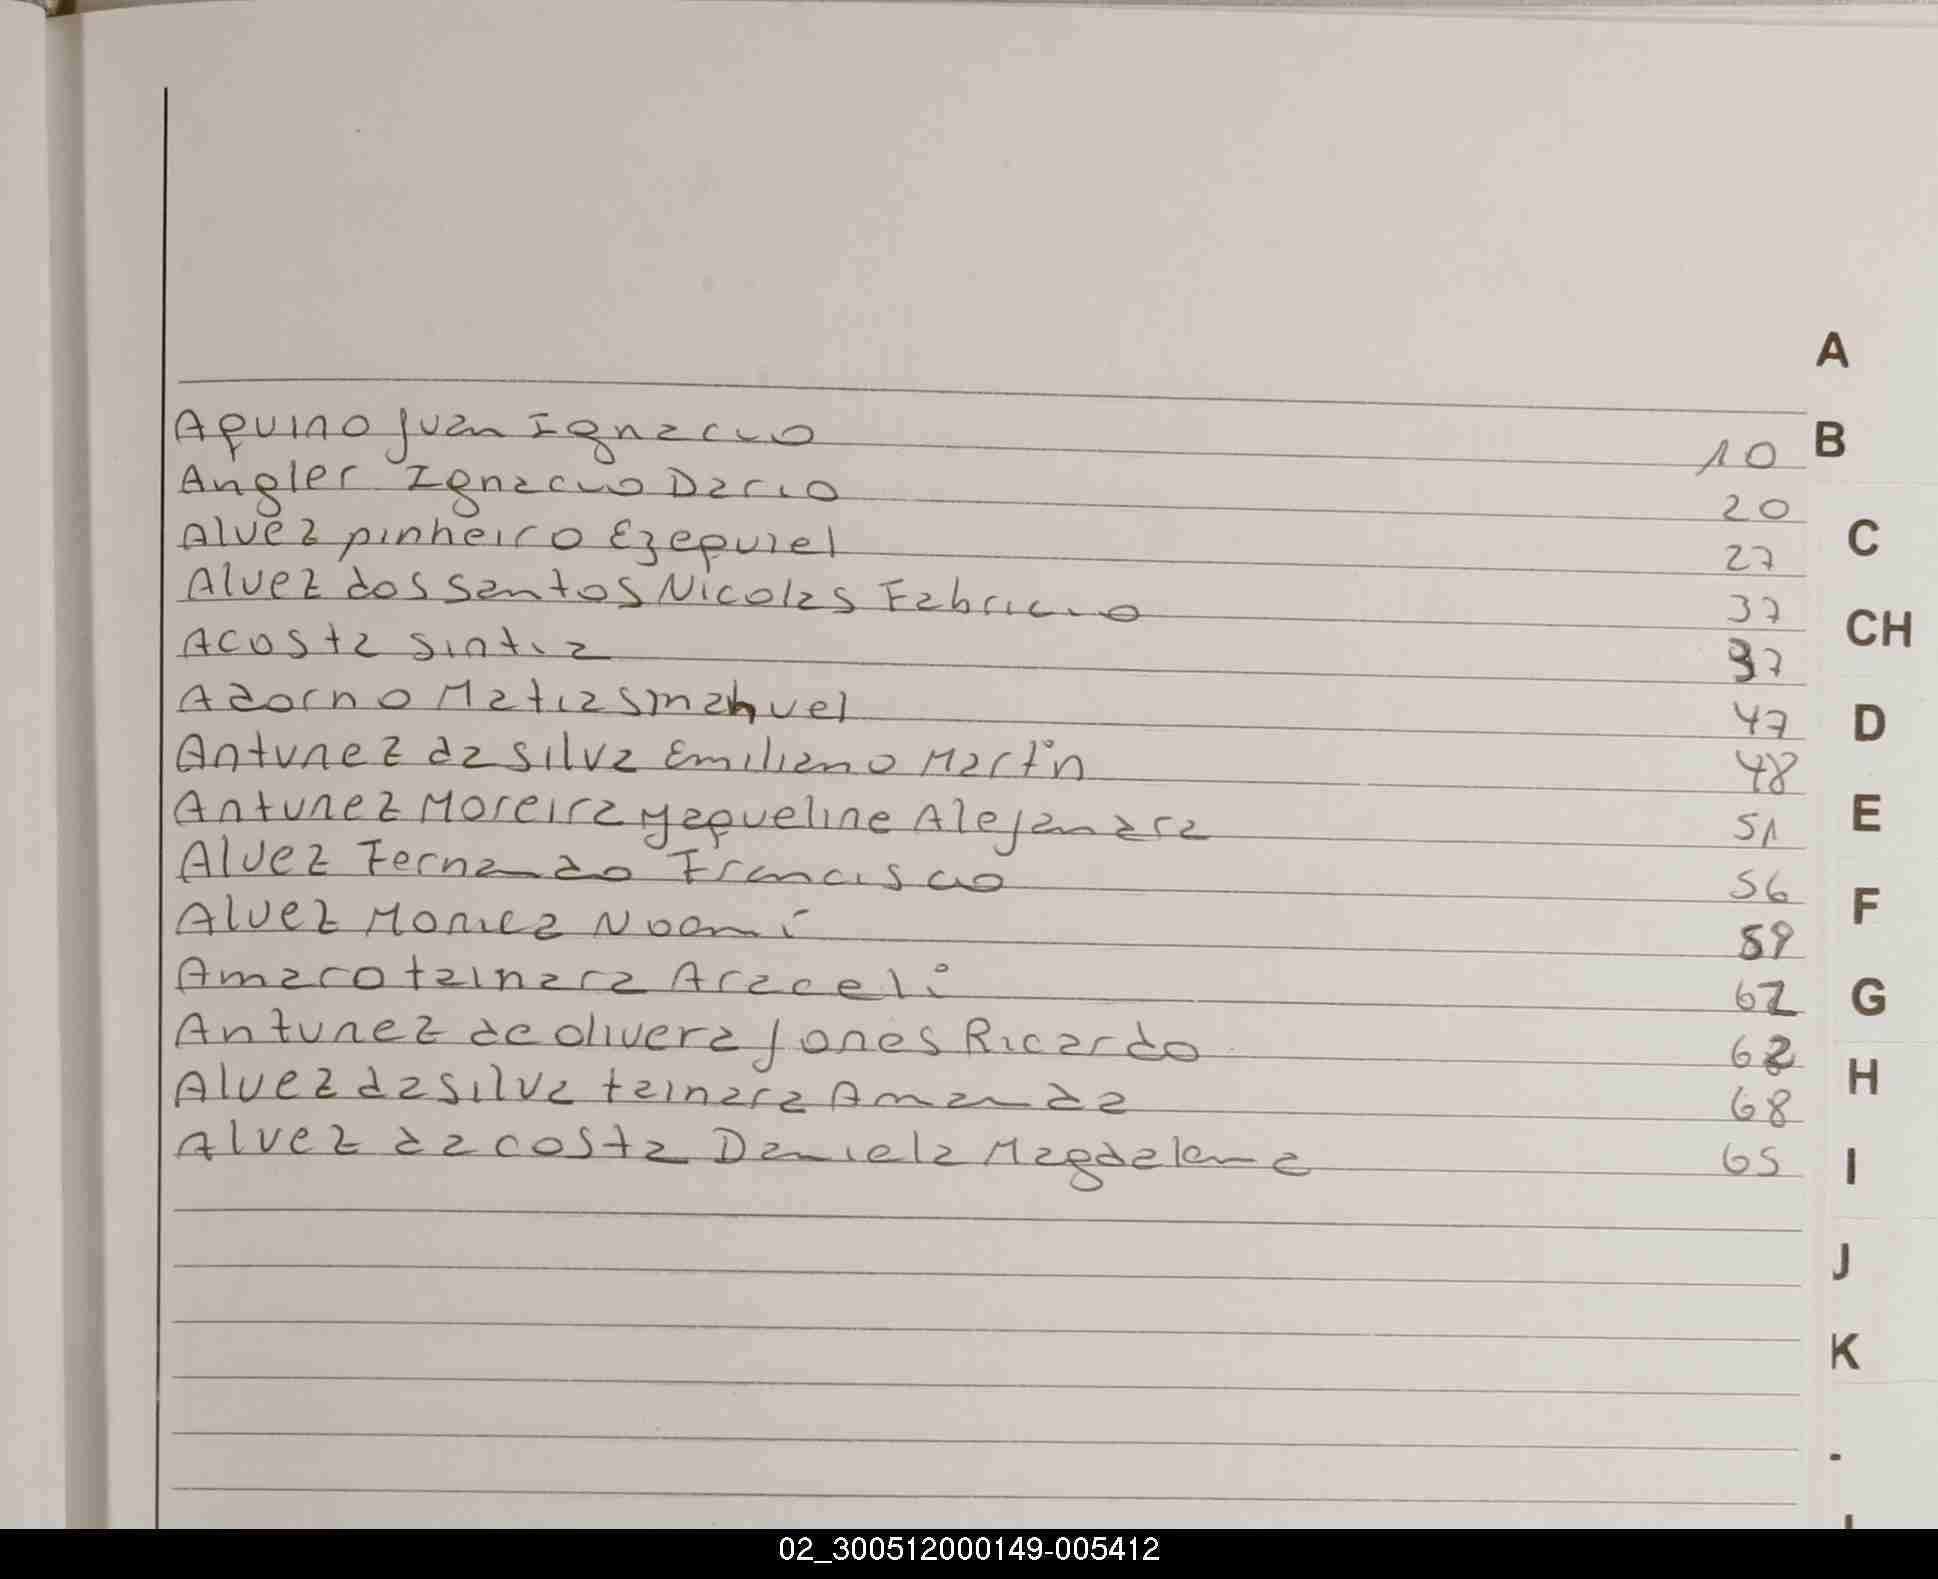 A
Aquino Juan Ignacio 10
B
Angler Ignacio Dario 20
Alvez pinheiro Ezequiel 27
C
Alvez dos Santos Nicolas Fabricio 37
CH
Acosta Sintia 37
Adorno Matias manuel 47
D
Antunez da silva Emiliano Martín 48
Antunez Moreira yaqueline Alejandra 51
E
Alvez Fernando Francisco 56
F
Alvez Monica Noemí 59
Amaro tainara Araceli 62
G
Antunez de olivera Jones Ricardo 62
H
Alvez da silva tainara Amanda 68
Alvez da costa Daniela Magdalena 65
I
J
K
02_300512000149-005412